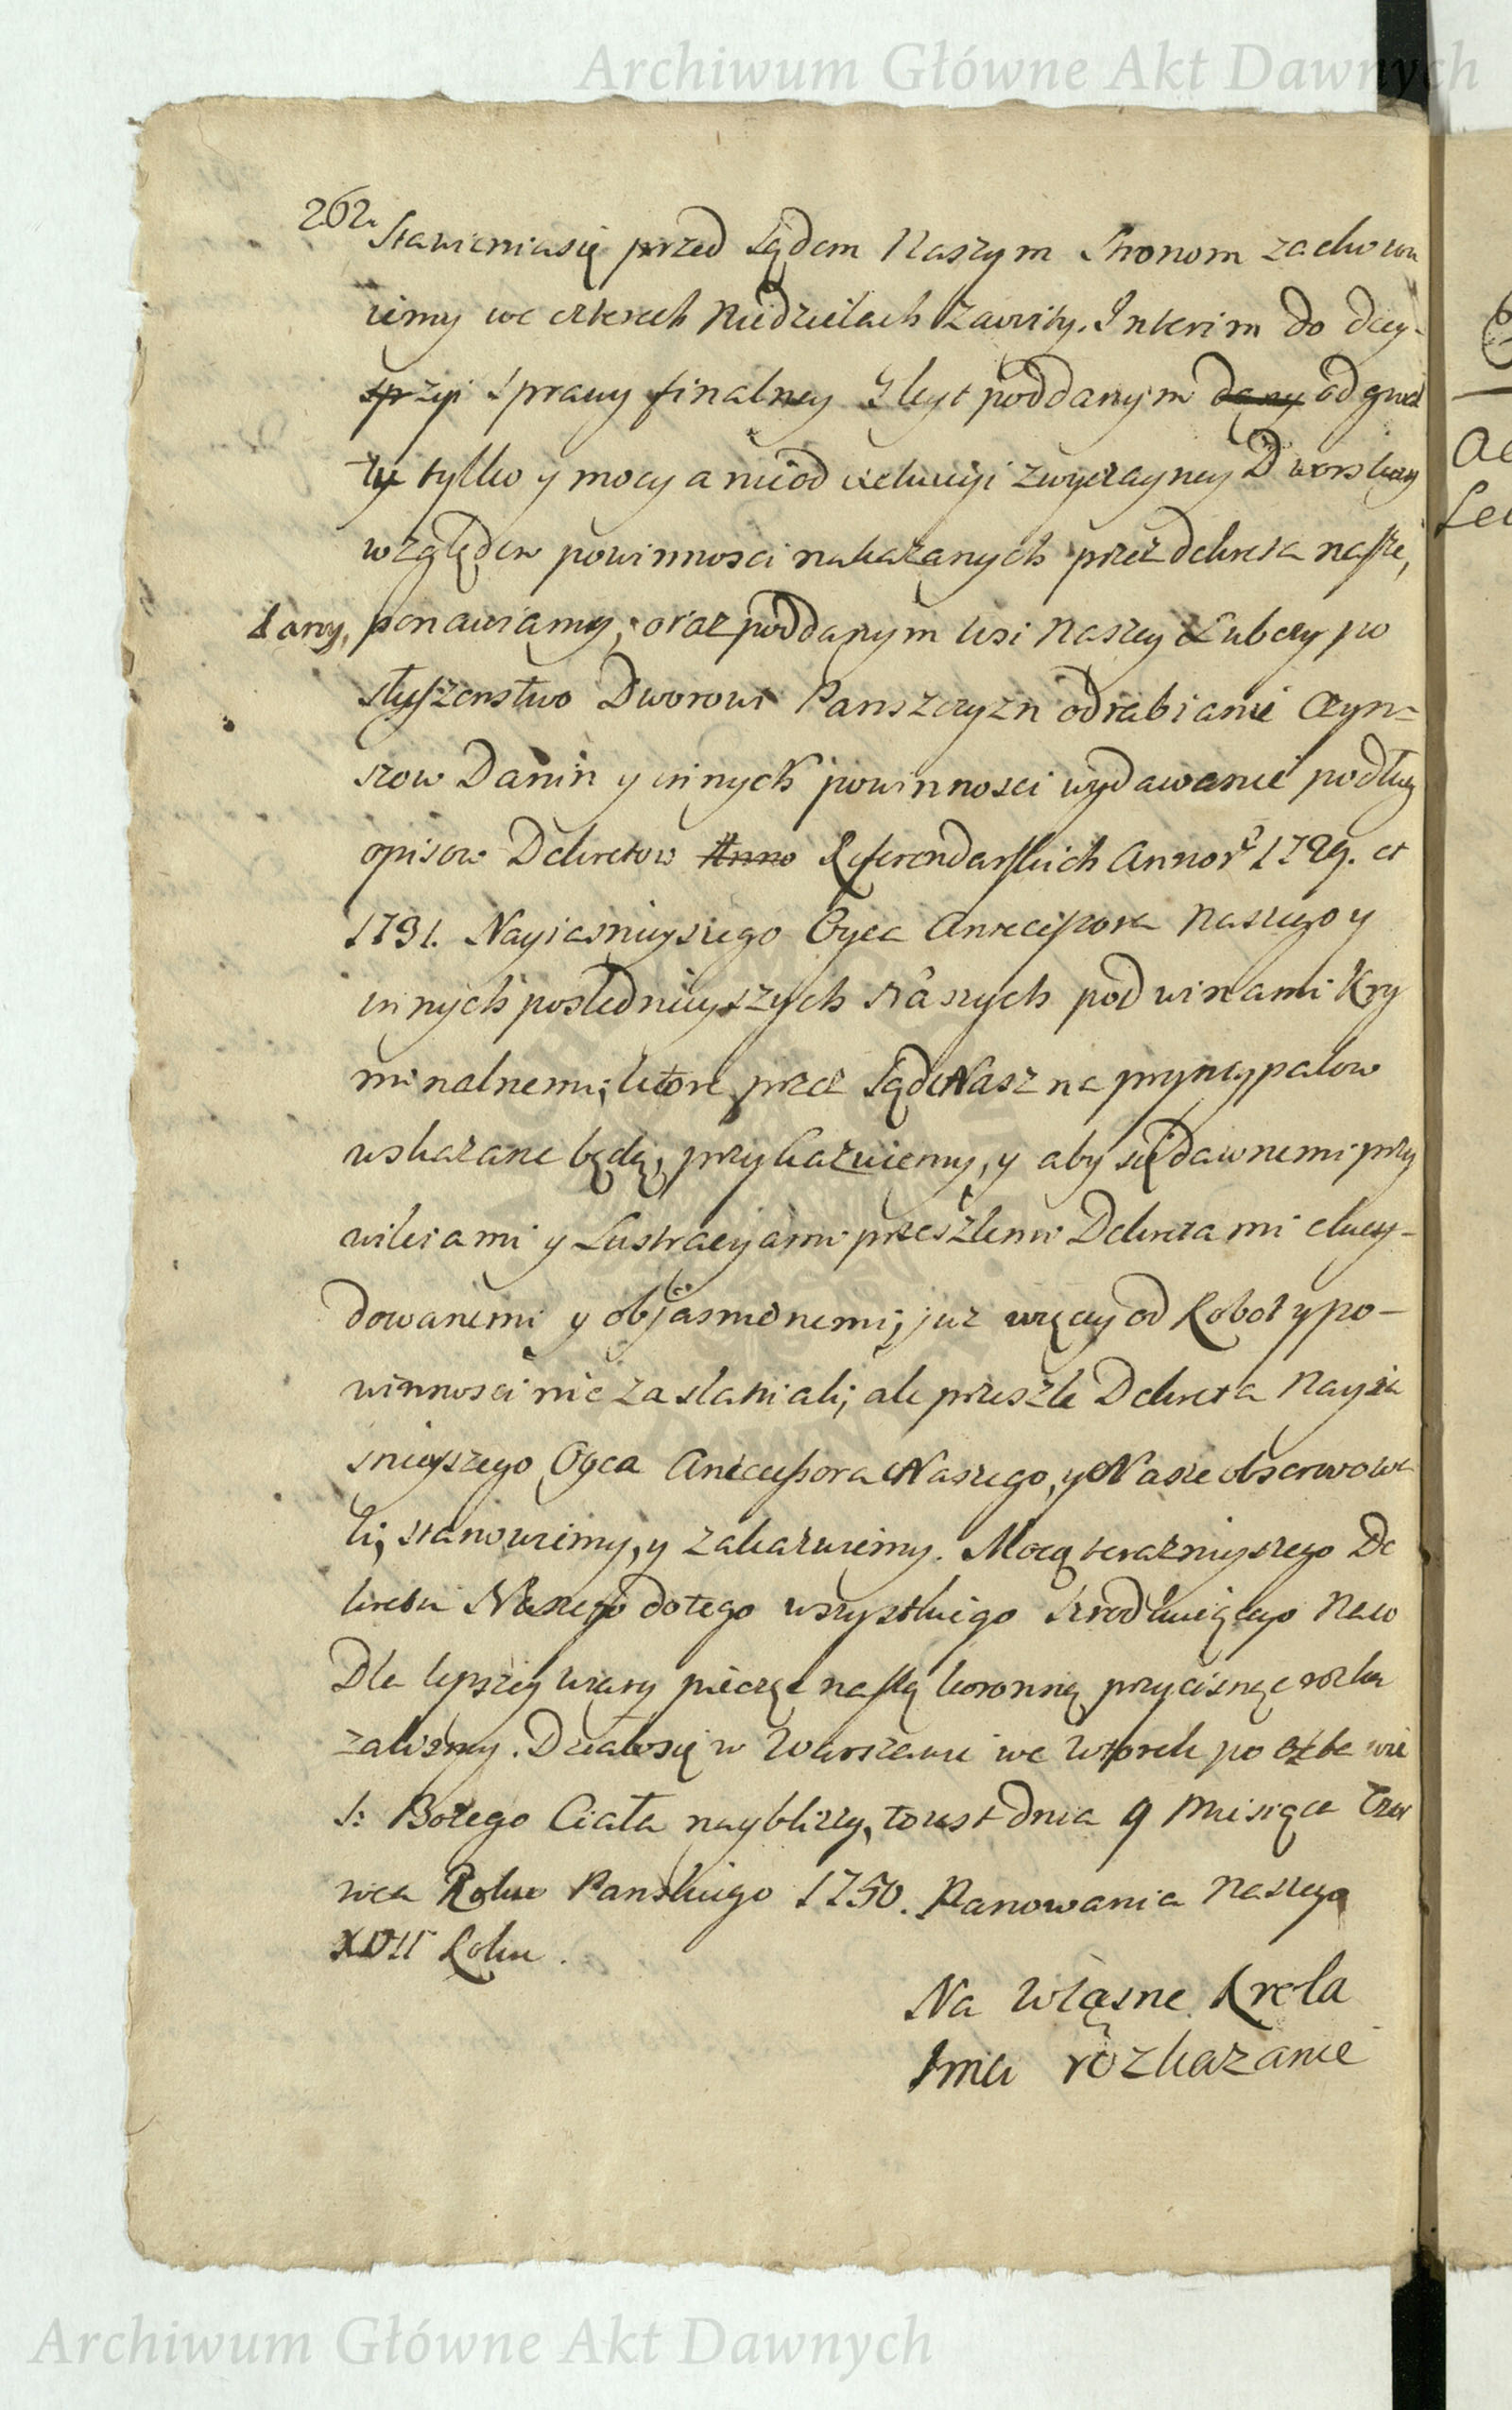 Archiwum Główne Akt Dawnych
262.
Stawienia się przed Sądem Naszym Stronom zachowu
iemy we czterech Niedzielach Zawity. Interim do decy-
zyi Sprawy finalney Gleyt poddanym dany od gwał
tu tylko y mocy a nie od exekucyi zwyczayney Dworskiey
względem powinnosci nakazanych przez dekreta nasze,
dany, ponawiamy, oraz poddanym wsi Naszey Lubczy po
słuszenstwo Dworowi Panszczyzn odrabianie Czyn=
szow Danin y innych powinnosci wydawanie podług
opisow Dekretow Anno Referendarskich Annor 1729. et
1731. Nayiasnieyszego Oyca Antecessora Naszego y
innych poslednieyszych naszych pod winami Kry
minalnemi, ktore przez Sąd Nasz na pryncypałow
wskazane będą, przykazuiemy, y aby się dawnemi przy
wileiami y Lustracyami przeszłemi Dekretami elucy-
dowanemi y objasnionemi, juz więcey od Robot y po-
winnosci nie zaslaniali; ale przeszłe Dekreta Nayia
snieyszego Oyca Antecessora Naszego, y Nasze obserwowa
li, stanowiemy, y zakazuiemy. Mocą teraznieyszego De
kretu Naszego do tego wszystkiego
Dla lepszey wiary pieczęc naszą koronną przycisnąc rozka
zalismy. Działo się w Warszawie we Wtorek po
S: Bozego Ciała naybliszy, to iest dnia 9 Miesiąca Czer
wca Roku Panskiego 1750. Panowania Naszego
XVII Roku.
Na własne Krola
Jmci rozkazanie
Archiwum Główne Akt Dawnych